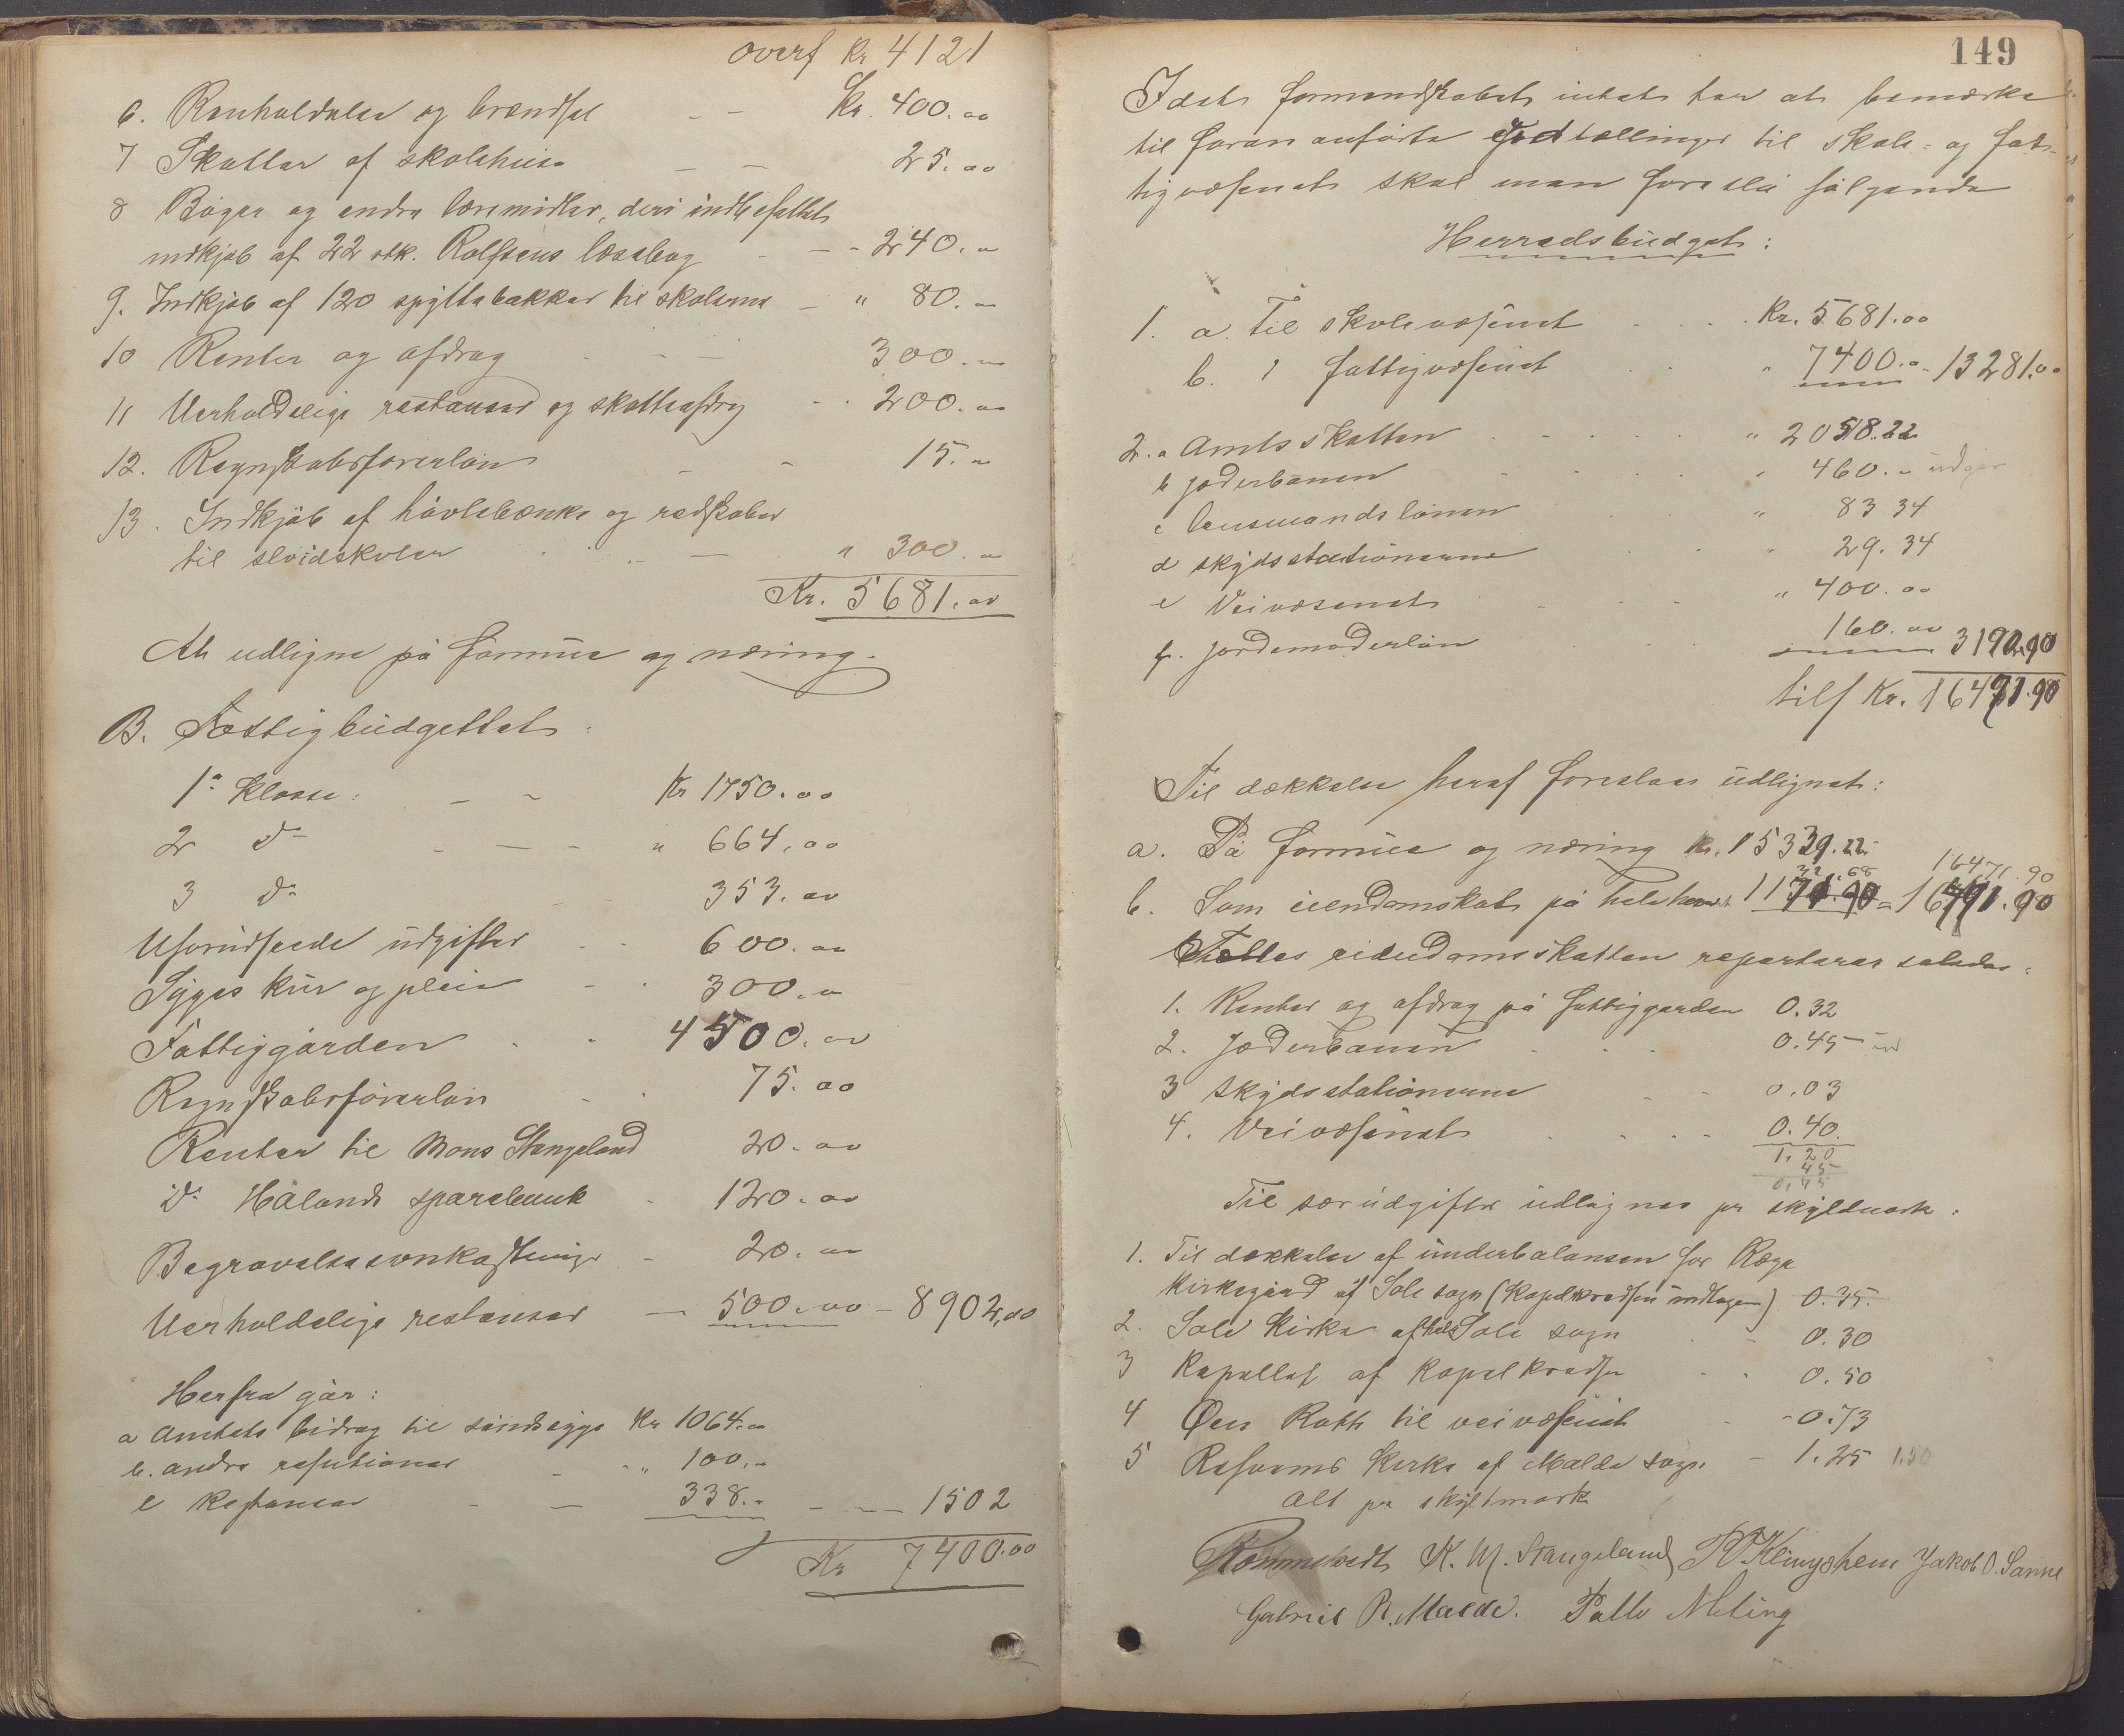 overf Kr 4121
6. Renholdelse og brændsel - - Kr. 400.00
7 Skatter af skolehuse - - 25.00
8 Bøger og andre læremidler, deri indbefattet
indkjøb af 22 stk. Rolfsens læsebog - - 240.00
9. Indkjøb af 120 spyttebakker til skolerne - " 80.00
10 Renter og afdrag - - 300.00
11 Uerholdelige restanser og skatteafdrag - - 200.00
12. Regnskabsførerløn - - 15.00
13. Indkjøb af høvlebænke og redskaber
til sløidskolen - - " 300.00
Kr. 5681.00
At udligne på formue og næring.
B. Fattigbudgettet:
1ª Klasse: - - Kr 1750.00
2 do - - - " 664.00
3 do 353.00
Uforudseede udgifter - - 600.00
Syges kur og pleie - - 300.00
Fattiggården - - 4500.00
Regnskabsførerløn - - 75.00
Renter til Mons Stangeland 20.00
do Halands sparebank - 120.00
Begravelsesomkostninger - 20.00
Uerholdelige restanser - 500.00 - 8902,00
Herfra går:
a Amtets bidrag til sindssyge Kr 1064.00
b. andre refutioner - - " 100.-
c Restanser - - 338.- - - 1502
Kr 7400.00
149
Idet formandskabet intet har at bemærke
til foran anførte opstillinger til skole- og fat-
tigvæsenet skal man foreslå følgende
Herredsbudget:
1. a. Til skolevæsenet . . . Kr. 5681.00
b. " fattigvæsenet . . " 7400.00 - 13281.00
2. a Amtsskatten . . . . " 2058.22
b Jæderbanen . . . " 460.00 udgår
c Lensmandslønnen . . " 83 34
d skydsstationerne . . " 29.34
e Veivæsenet . . . " 400.00
f. Jordemoderløn . . 160.00 3190.90
tils Kr. 16471.90
Til dækkelse heraf foreslaes udlignet:
a. På formue og næring Kr. 15339.22
b. Som eiendomskat på hele herredet 1171.90 = 16471.90
32.68 16471.90
Fælles eiendomsskatten reparteres således:
1. Renter og afdrag på fattiggarden 0.32
2. Jæderbanen . . . 0.45 ud
3 skydsstationerne - - 0.03
4. Veivæsenet . . . . 0.40.
1,20
45
0,75
Til særudgifter udlignes pr skyldmark:
1. Til dækkelse af underbalansen for Ræge
kirkegård af Sole sogn (Kapelkredsen undtagen) 0.35.
2. Sole Kirke af hele Sole sogn - 0.30
3 Kapellet af Kapelkredsen - - 0.50
4 Øen Rott til veivæsenet - - 0.73
5 Refsnes Kirke af Malde sogn - 1.25 1.50
alt pr skyldmark
Rommetvedt K. M. Stangeland P. Klingsheim Jakob O. Sanne
Gabriel R. Malde. Palle Meling